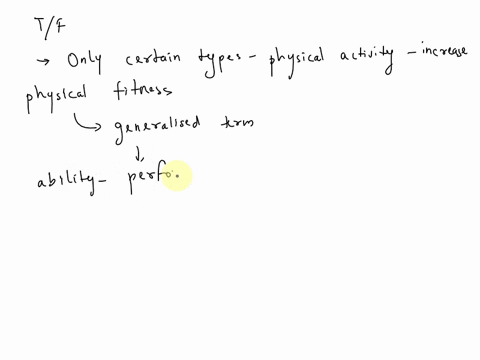 T/F
→ Only certain types - physical activity - increase
physical fitness
↳ generalised term
↓
ability - perfo